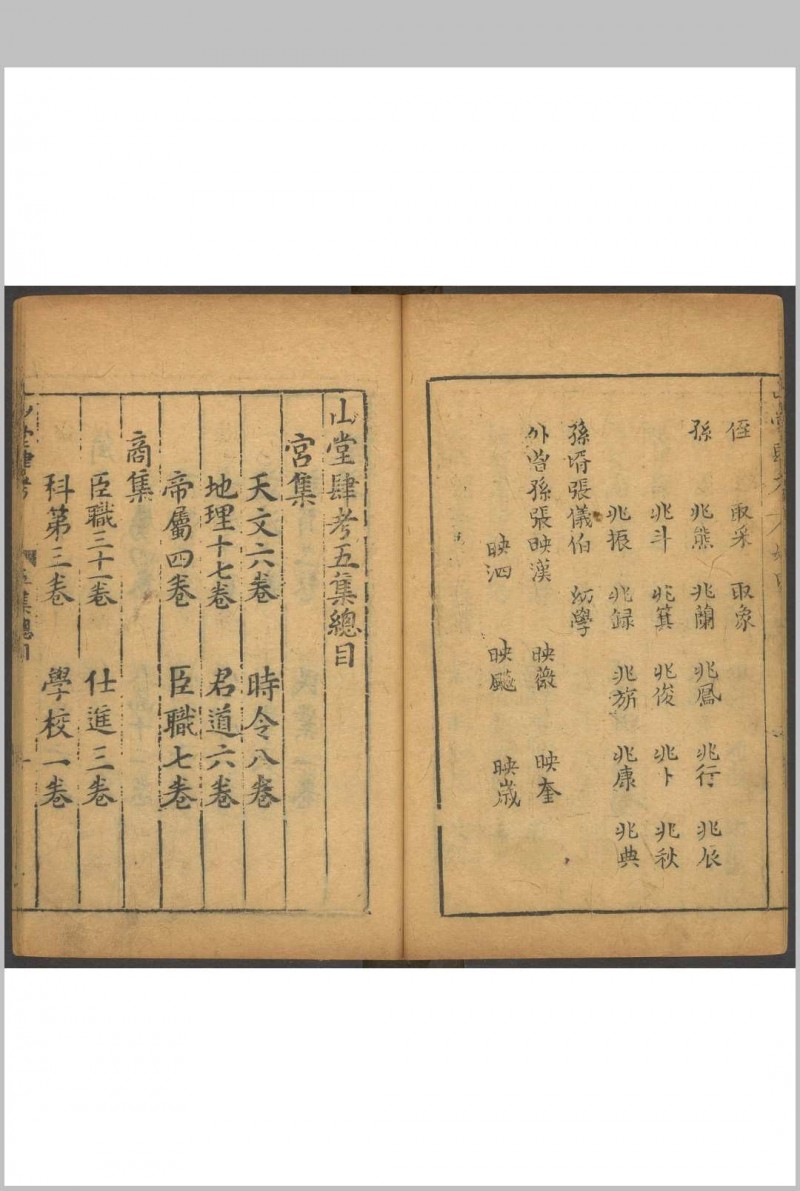 侄 取采 取象
孫 兆熊 兆蘭 兆鳳 兆行 兆辰
兆斗 兆箕 兆俊 兆卜 兆秋
兆振 兆録 兆旂 兆康 兆典
孫壻張儀伯 幼學
外曾孫張映漢 映薇 映奎
映泗 映颷 映嵗
山堂肆考五集總目
宮集
天文六卷 時令八卷
地理十七卷 君道六卷
帝屬四卷 臣職七卷
商集
臣職三十一卷 仕進三卷
科第三卷 學校一卷
山堂肆考 五集總目 一